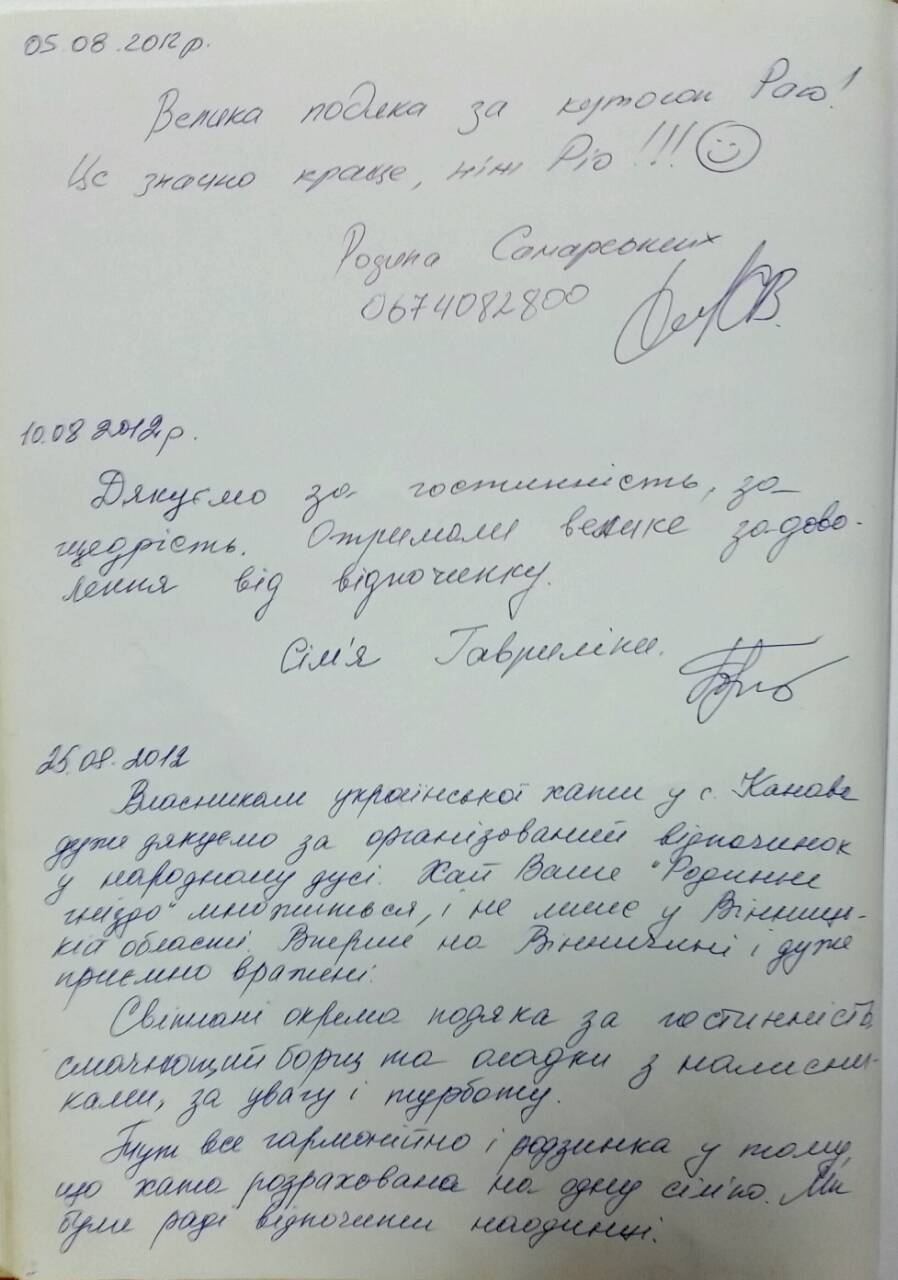 05.08.2012р.
Велика подяка за куточок Раю!
Це значно краще, ніж Ріо!!!
Родина Самарських
0674082800
10.08.2012р.
Дякуємо за гостинність, за
щедрість. Отримали велике задово-
лення від відпочинку.
Сім'я Гавриліна.
25.08.2012
Власникам української хати у с. Канава
дуже дякуємо за організований відпочинок
у народному дусі. Хай Ваше "Родинне
гніздо" множиться, і не лише у Вінниць-
кій області. Вперше на Вінничині і дуже
приємно вражені.
Світлані окрема подяка за гостинність,
смачнющий борщ та оладки з налисни-
ками, за увагу і турботу.
Тут все гармонійно і родзинка у тому,
що хата розрахована на одну сім'ю. Ми
були раді відпочити наодинці.